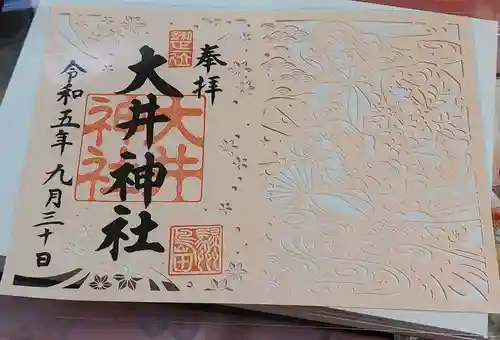 奉拝
大井神社
大井神社
令和五年九月三十日